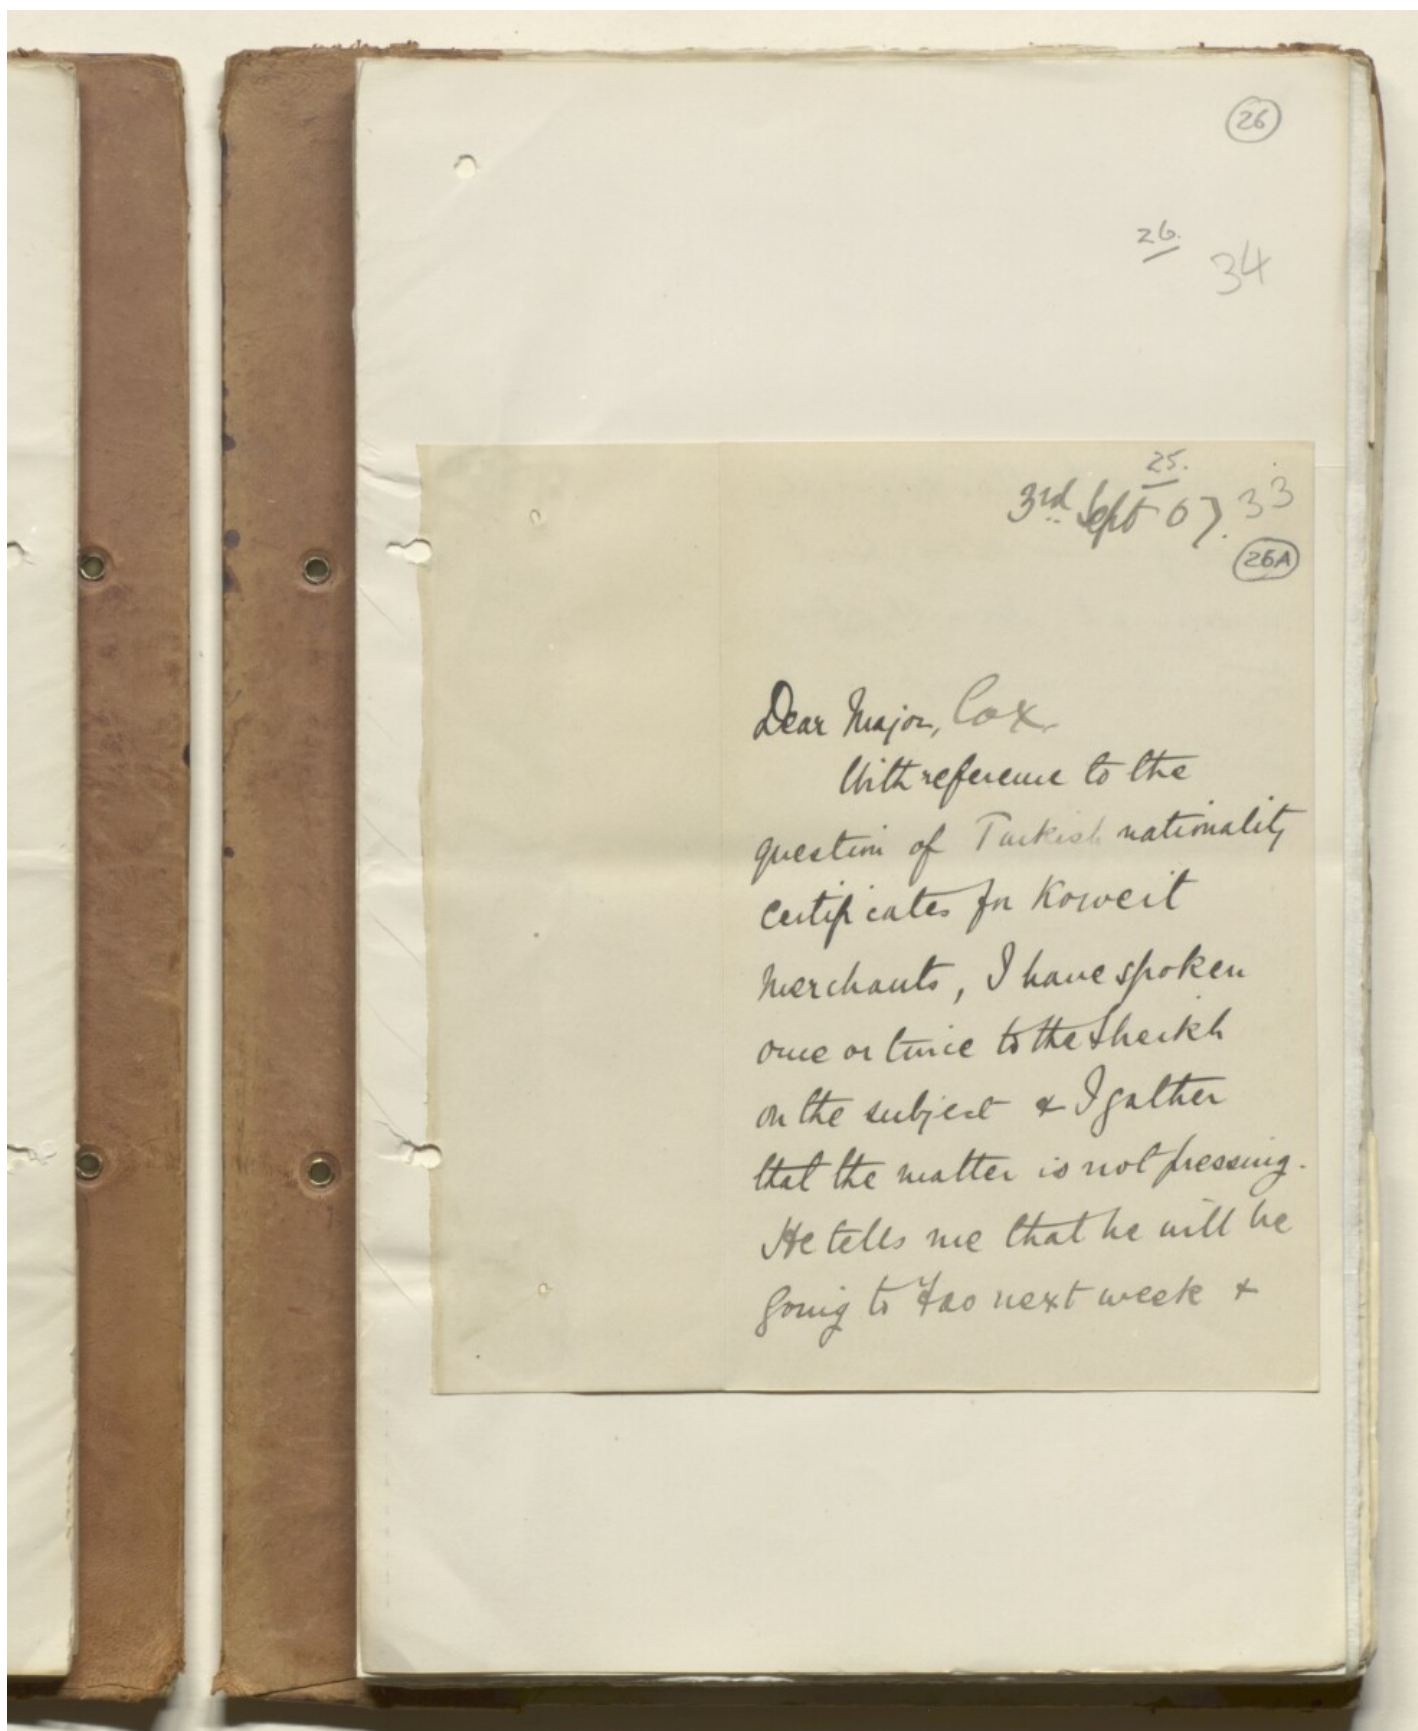 26
26.
34
25.
3rd Sept 07. 33
26A
Dear Major, Cox.
With reference to the
question of Turkish nationality
certificates for Koweit
Merchants, I have spoken
once or twice to the Sheikh
on the subject & I gather
that the matter is not pressing.
He tells me that he will be
going to Fao next week &